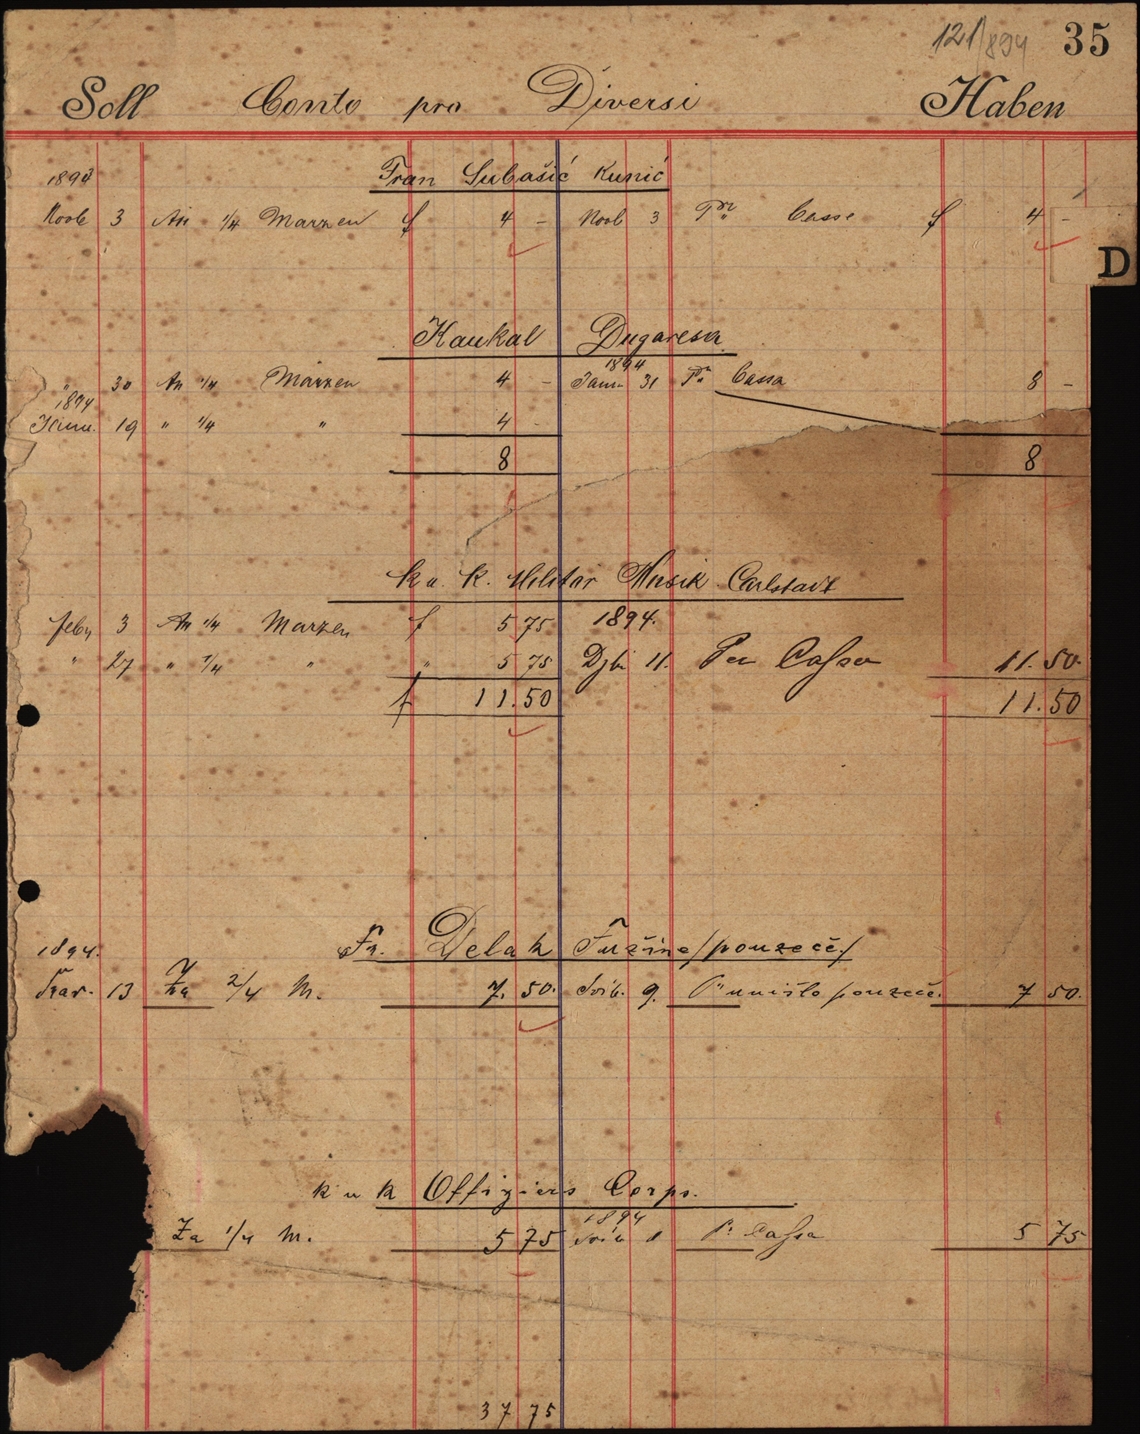 121/894 35
Soll Conto pro Diversi Haben
Fran Subašić Kunić
1893
Novb 3 An 1/4 Marzen f 4 - Novb 3 Pr Casse f 4 -
D
Kaukal Dugaresa
" 30 An 1/4 Marzen 4 - 1894 Jann. 31 Pr Cassa 8 -
1894
Jänn. 19 " 1/4 " 4 -
8 8
k u. k. Militär Musik Carlstadt
feby 3 An 1/4 Marzen f 5 75 1894.
" 27 " 1/4 " " 5 75 11. Per Cassa 11.50.
f 11.50 11.50
1894. Fr. Delak Fužine /pouzeće/
Trav. 13 Za 2/4 M. 7. 50. Svib. 9. Pr pouzeće. 7 50.
k u k Offiziers Corps.
Za 1/4 M. 5 75 1894 Svib Pr Cassa 5 75
37 75